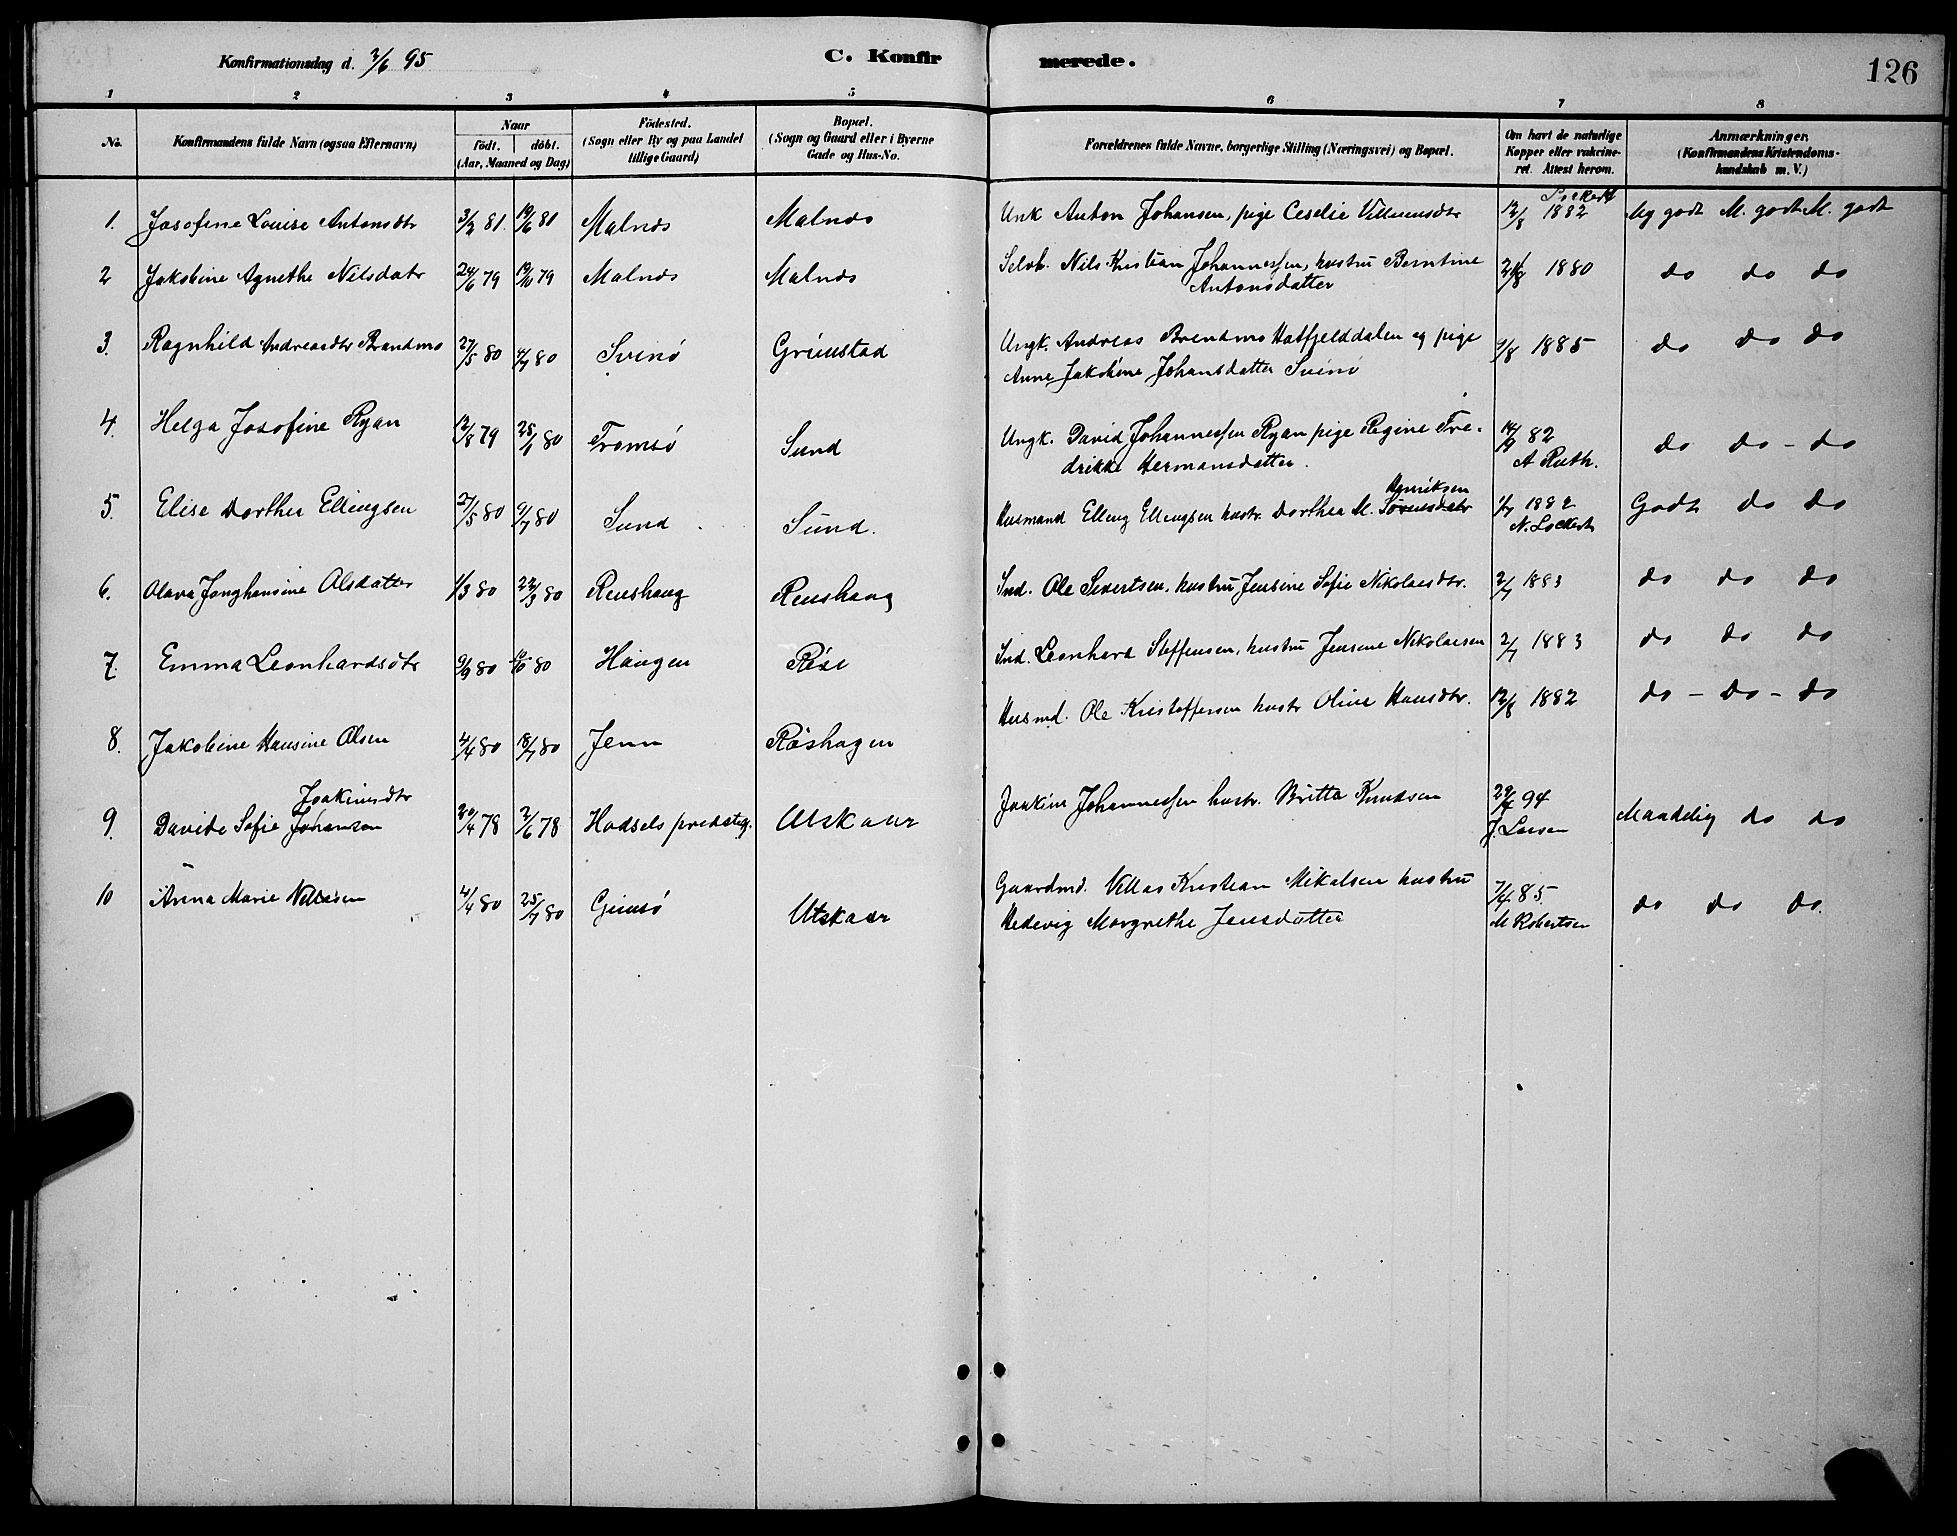 Konfirmationsdag d. 2/6 95
C. Konfirmerede.
126
1 2 3 4 5 6 7 8
No. Konfirmandens fulde Navn (ogsaa Efternavn) Naar födt. döbt. (Aar, Maaned og Dag) Födested. (Sogn eller By og paa Landet tillige Gaard) Bopæl. (Sogn og Gaard eller i Byerne Gade og Hus-No. Forældrenes fulde Navne, borgerlige Stilling (Næringsvei) og Bopæl. Om havt de naturlige Kopper eller vakcineret. Attest herom. Anmærkninger. (Konfirmandens Kristendomskundskab m. V.)
1. Josefine Louise Antonsdtr 3/2 81 19/6 81 Malnes Malnes Unk Anton Johansen, pige Ceselie Villumsdtr Lockert 12/8 1882 Mg godt M. godt M. godt
2 Jakobine Agnethe Nilsdatr 24/6 79 19/10 79 Malnes Malnes Selvb. Nils Kristian Johannessen, hustru Berntine
Antonsdatter 1880 do do do
3. Ragnhild Andreasdtr Brandmo 27/5 80 4/7 80 Svinö Grimstad Ungk. Andreas Brendmo Hatfjelddalen og pige
Anne Jakobine Johansdatter Svinö 1/8 1885 do do do
4. Helga Josofine Ryan 12/8 79 25/1 80 Tromsö Sund Ungk. David Johannessen Ryan pige Regine Fre-
drikke Hermansdatter. 14/9 82 do do - do
A Ruth.
5. Elise Dorthea Ellingsen 27/5 80 9/7 80 Sund Sund. Henriksen
Husmand Elling Ellingsen hustr. Dorthea M. 1/7 1882 Godt do do
N. Lockert
6. Olava Janghansine Olsdatter 1/3 80 22/3 80 Renshaug Renshaug Ind. Ole Sivertsen, hustru Jensine Sofie Nikolaisdtr. 2/7 1883 do do do
7. Emma Leonhardsdtr 9/9 80 10/10 80 Haugen Röse Ind. Leonhard Steffensen, hustru Jensine Nikolaisen 2/7 1883 do do do
8. Jakobine Hansine Olsen 4/4 80 18/7 80 Jenn Röshagen Husmd. Ole Kristoffersen hustr Oline Hansdtr. 12/8 1882 do - do - do
Joakimsdtr
9. Davide Sofie Johansen 20/4 78 2/6 78 Hadsels prdstg. Utskaar Joakim Johannessen hustr. Britta Knudsen 94 Maadelig do do
J. Larsen
10 Anna Marie Villasen 4/4 80 25/7 80 Gimsö Utskaar Gaardmd. Villas Kristian Mikalsen hustru
Hedevig Margrethe Jensdatter 7/4 85. do do do.
M Robertsen